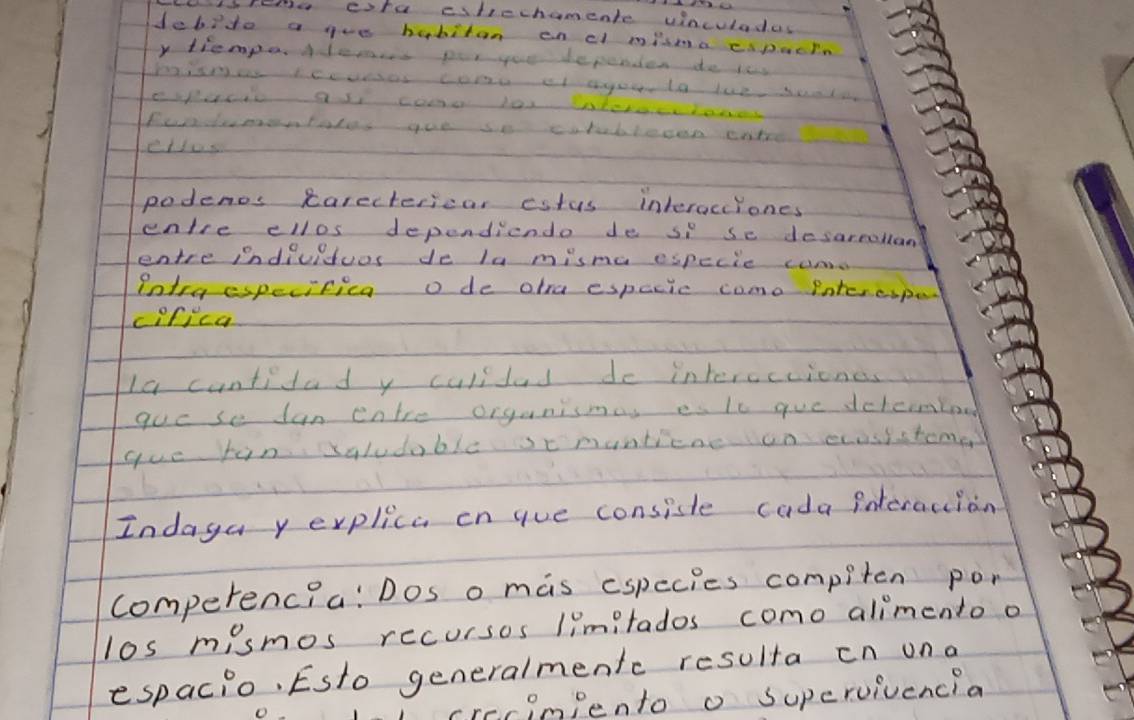 esta estrechamente vinculadas
debido a que habitan en el mismo espacio
y tiempo. Ademas por que dependen de los
mismos recursos como el agua, la luz, suelo,
espacio asi como las interacciones
Fundamentales que se establecen entre
ellos
podemos carectericar estas interacciones
entre ellos dependiendo de si se desarrollan
entre individuos de la misma especie como
intra especifica o de otra especie como interespe-
cifica
la cantidad y calidad de interacciones
que se dan entre organismos es lo que determina
que tan saludable se mantiene un ecosistema
Indaga y explica en que consiste cada interacción
competencia: Dos o más especies compiten por
los mismos recursos limitados como alimento o
espacio. Esto generalmente resulta en una
crecimiento o supervivencia